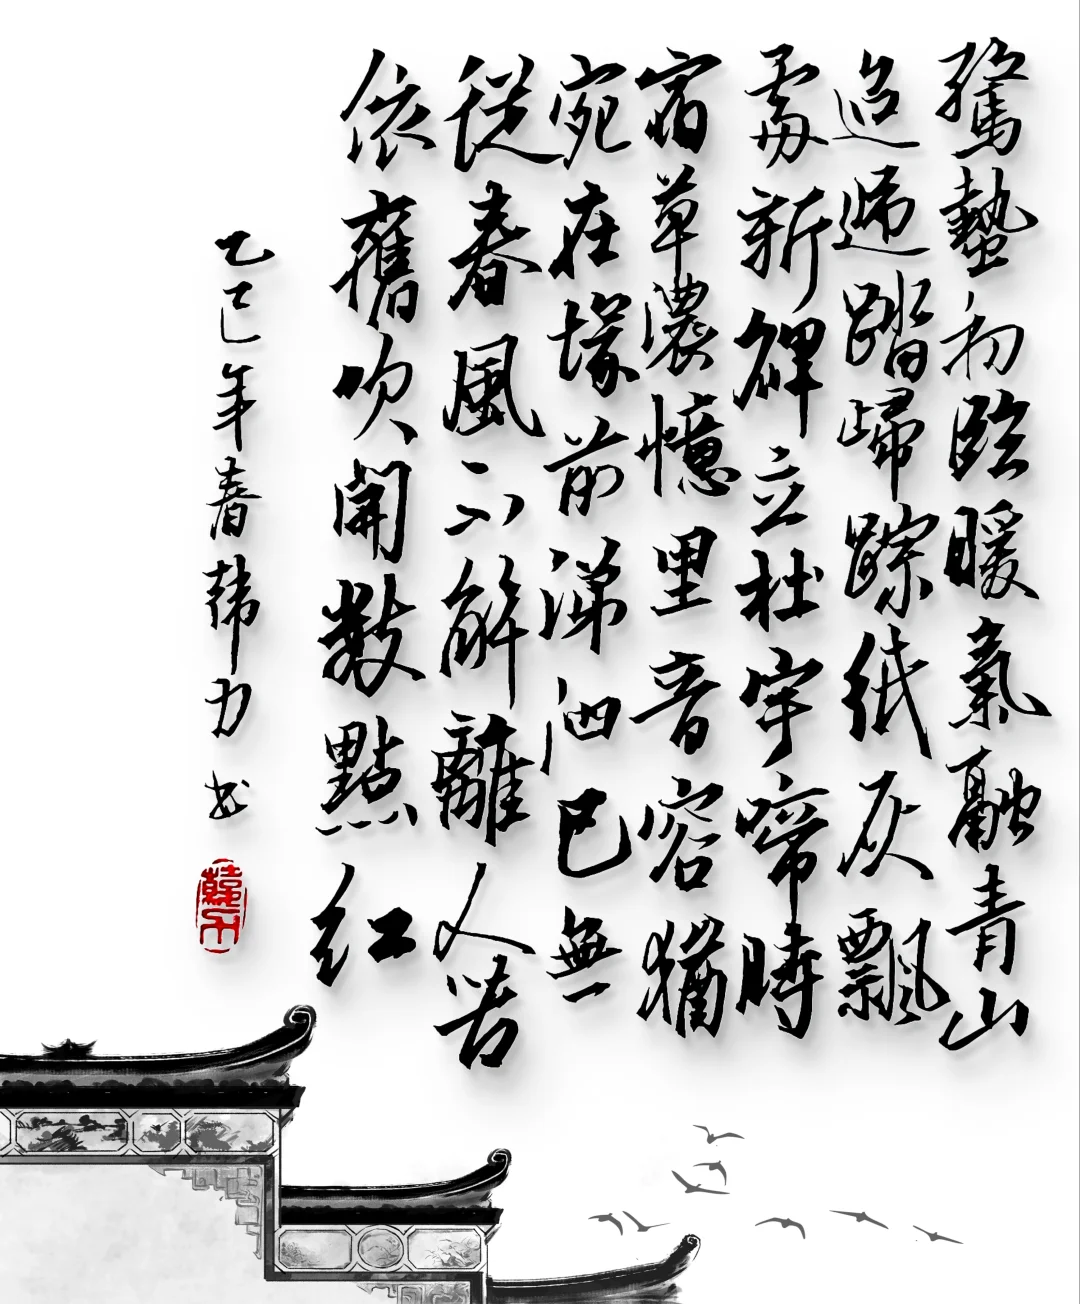 驚蟄初臨暖氣融青山
迢遞踏歸踪纸灰飄
處新碑立杜宇啼時
宿草濃憶里音容猶
宛在墳前涕泗已無
從春風不解離人苦
依舊吹開數點红
乙巳年春韩力书